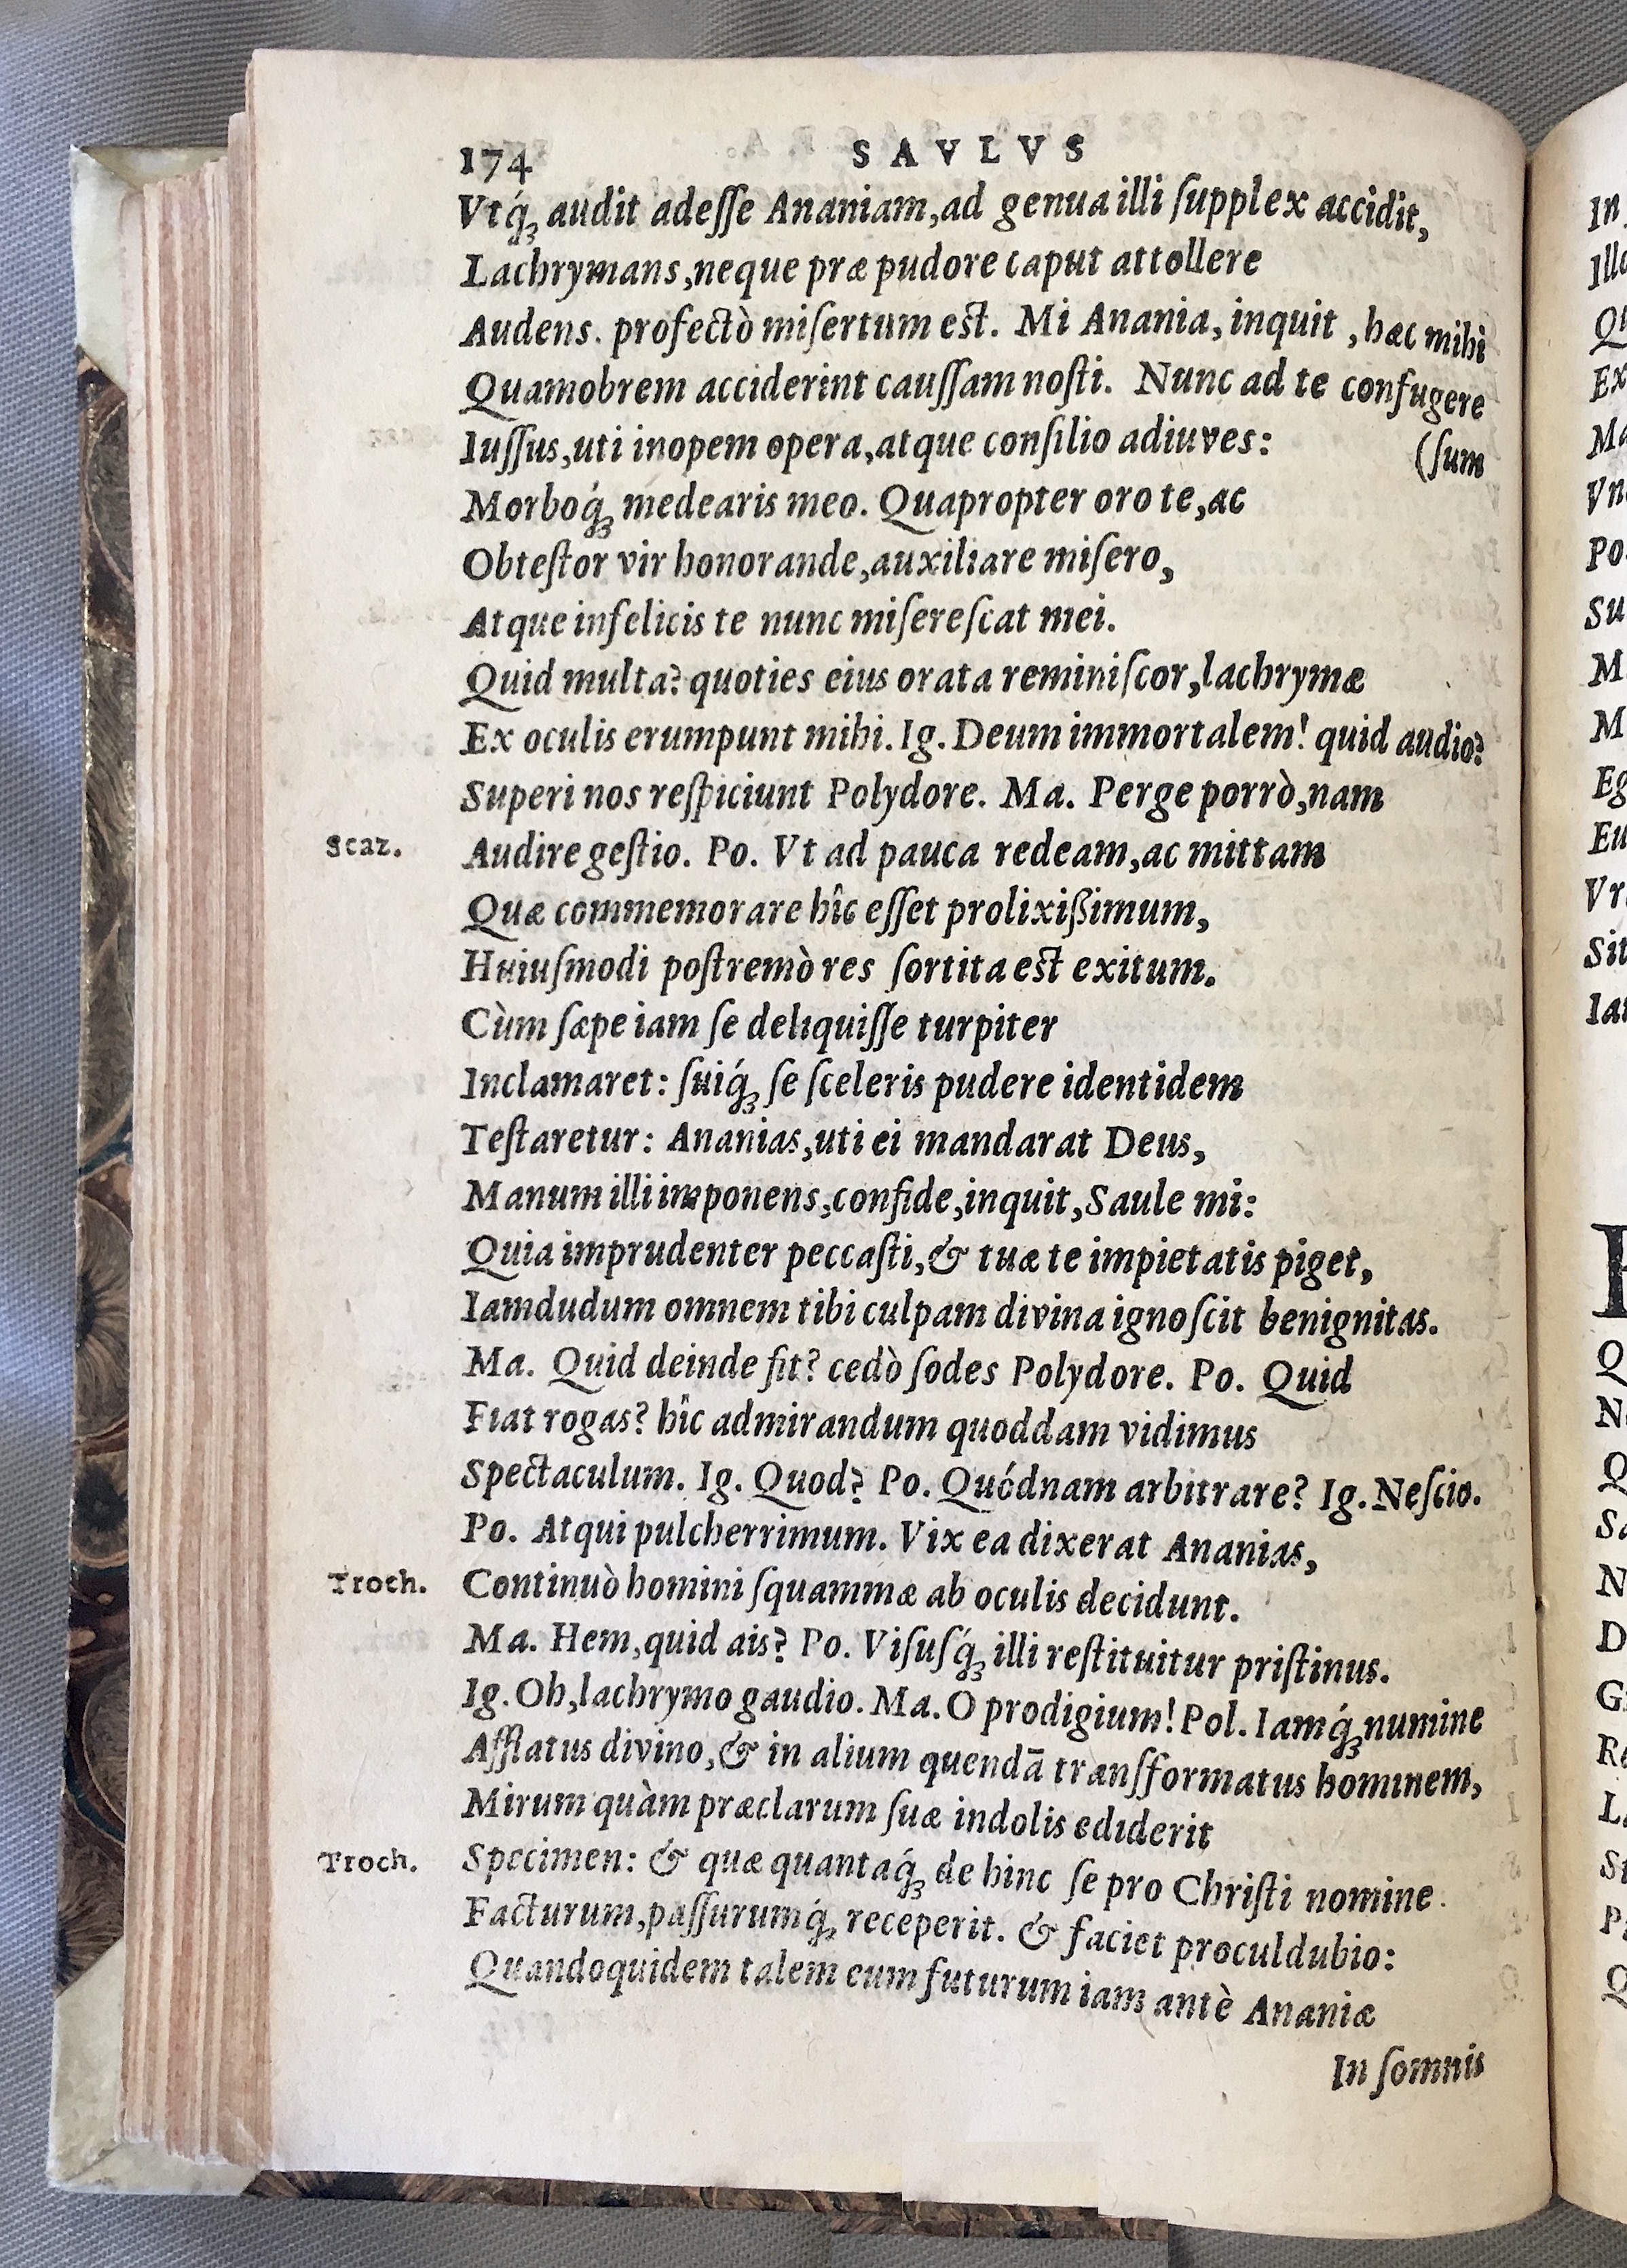 174 SAVLVS
Vtq́; audit adeſſe Ananiam,ad genua illi ſupplex accidit,
Lachrymans,neque præ pudore caput attollere
Audens. profectò miſertum est. Mi Anania, inquit , hæc mihi
Quamobrem acciderint cauſſam noſti. Nunc ad te confugere
Iuſſus,uti inopem opera,atque conſilio adiuves: (ſum
Morboq́; medearis meo. Quapropter oro te,ac
Obteſtor vir honorande,auxiliare miſero,
Atque infelicis te nunc miſereſcat mei.
Quid multa? quoties eius orata reminiſcor,lachrymæ
Ex oculis erumpunt mihi. Ig. Deum immortalem! quid audio?
Superi nos reſpiciunt Polydore. Ma. Perge porrò,nam
Scaz. Audire geſtio. Po. Vt ad pauca redeam,ac mittam
Quæ commemorare hîc eſſet prolixißimum,
Huiuſmodi poſtremò res ſortita est exitum.
Cùm ſæpe iam ſe deliquiſſe turpiter
Inclamaret: ſuiq́; ſe ſceleris pudere identidem
Teſtaretur: Ananias,uti ei mandarat Deus,
Manum illi imponens,confide,inquit,Saule mi:
Quia imprudenter peccaſti,& tuæ te impietatis piget,
Iamdudum omnem tibi culpam divina ignoſcit benignitas.
Ma. Quid deinde fit? cedò ſodes Polydore. Po. Quid
Fiat rogas? hîc admirandum quoddam vidimus
Spectaculum. Ig. Quod? Po. Quódnam arbitrare? Ig. Neſcio.
Po. Atqui pulcherrimum. Vix ea dixerat Ananias,
Troch. Continuò homini ſquammæ ab oculis decidunt.
Ma. Hem,quid ais? Po. Viſuſq́; illi reſtituitur priſtinus.
Ig. Oh,lachrymo gaudio. Ma. O prodigium! Pol. Iamq́; numine
Afflatus divino,& in alium quendā tranſformatus hominem,
Mirum quàm præclarum ſuæ indolis ediderit
Troch. Specimen: & quæ quantaq́; de hinc ſe pro Chriſti nomine
Facturum,paſſurumq́; receperit. & faciet proculdubio:
Quandoquidem talem eum futurum iam antè Ananiæ
In ſomnis